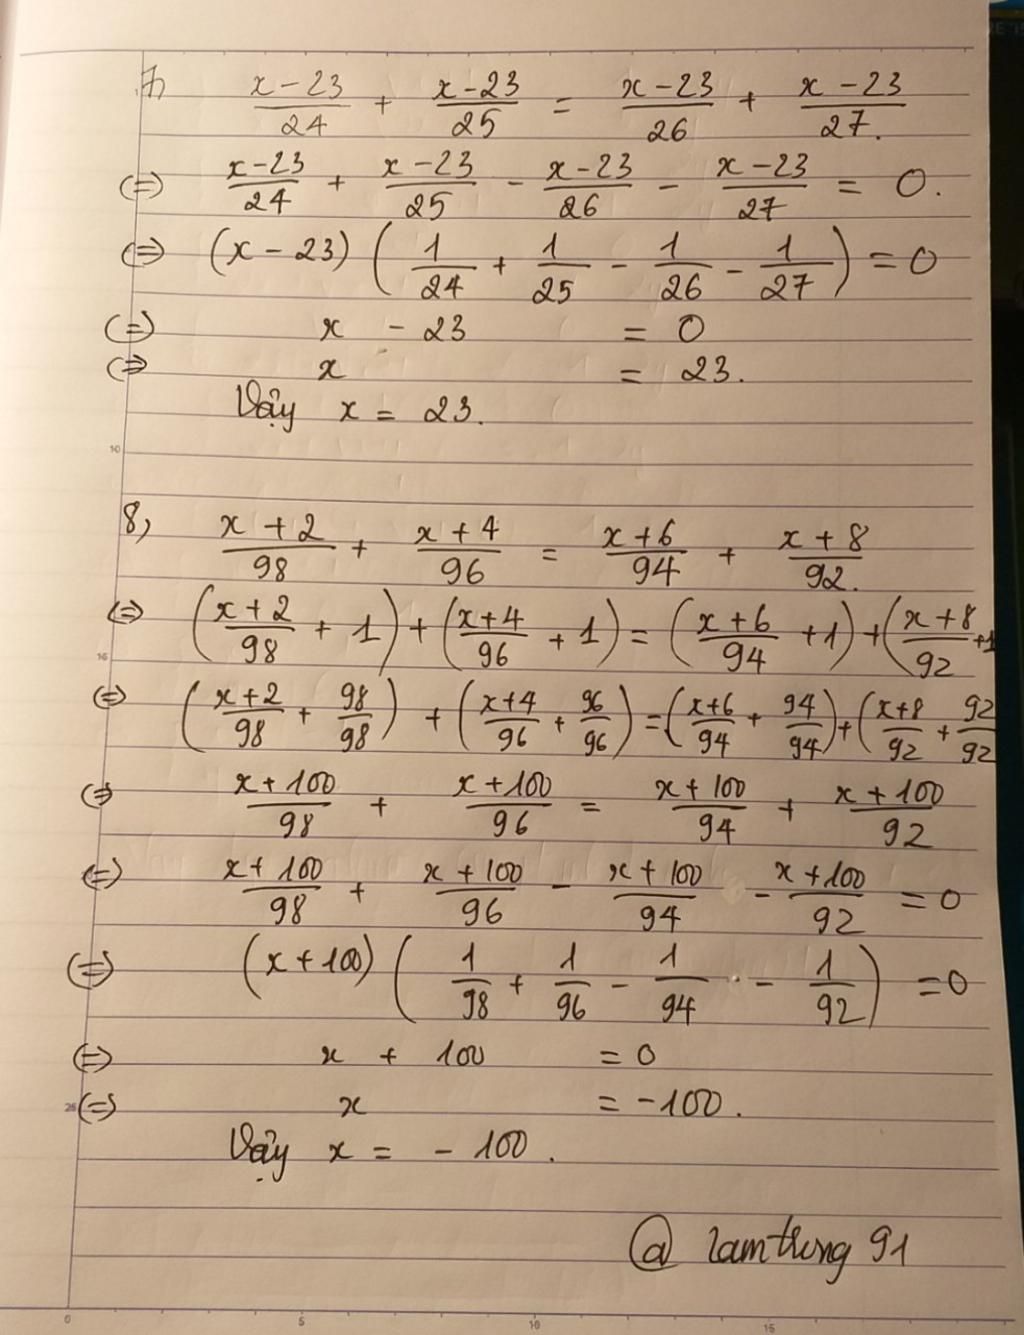 7) x-23/24 + x-23/25 = x-23/26 + x-23/27.
(=) x-23/24 + x-23/25 - x-23/26 - x-23/27 = 0.
(=) (x - 23) (1/24 + 1/25 - 1/26 - 1/27) = 0
(=) x - 23 = 0
(=) x = 23.
Vậy x = 23.
10
8, x+2/98 + x+4/96 = x+6/94 + x+8/92.
(=) (x+2/98 + 1) + (x+4/96 + 1) = (x+6/94 + 1) + (x+8/92 + 1
16
(=) (x+2/98 + 98/98) + (x+4/96 + 96/96) = (x+6/94 + 94/94) + (x+8/92 + 92/92
(=) x+100/98 + x+100/96 = x+100/94 + x+100/92
(=) x+100/98 + x+100/96 - x+100/94 - x+100/92 = 0
(=) (x+100) (1/98 + 1/96 - 1/94 - 1/92) = 0
(=) x + 100 = 0
(=) x = -100.
Vậy x = - 100.
@ lamtung 91
0 5 10 15